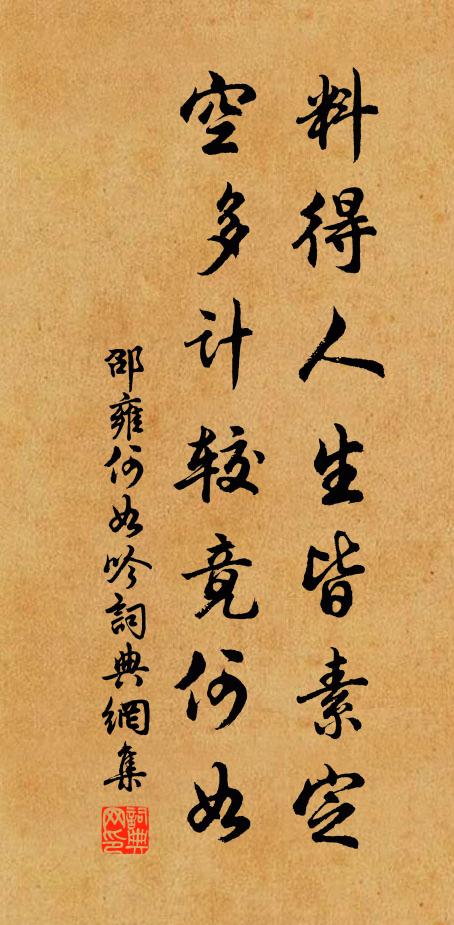 料得人生皆素定
空多计较竟何如
邵雍何如吟詞典網集
詞典网印